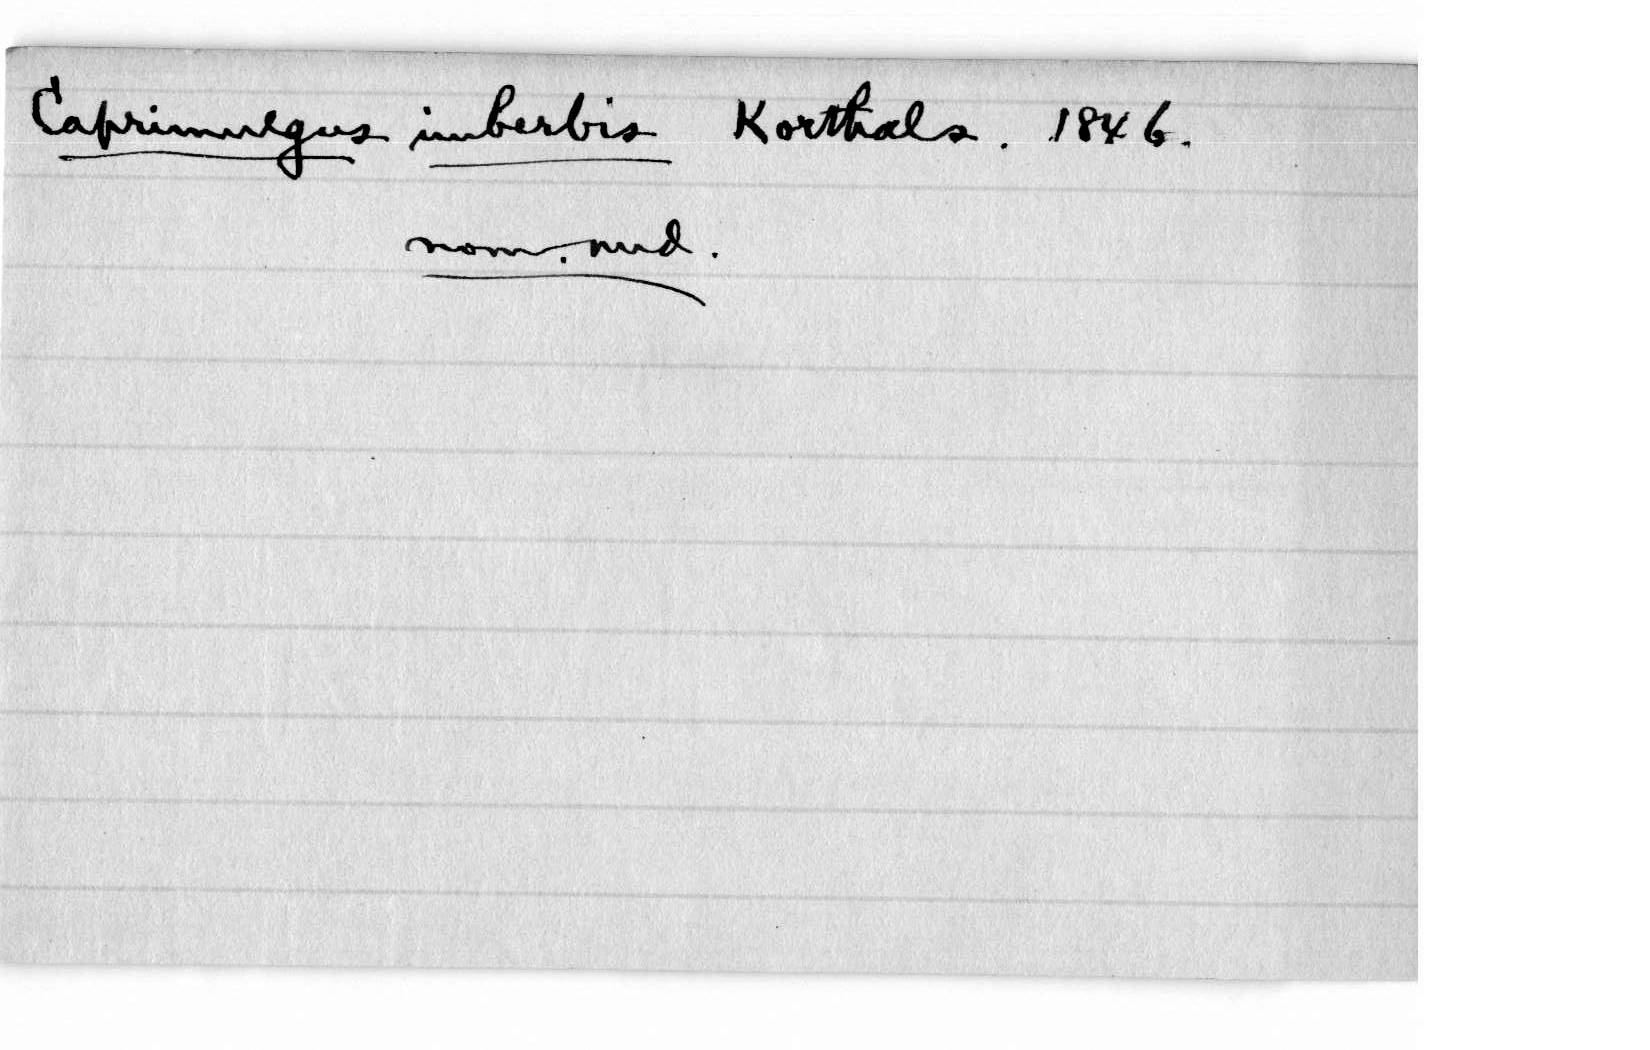 Caprimulgus imberbis Korthals. 1846.
nom. nud.